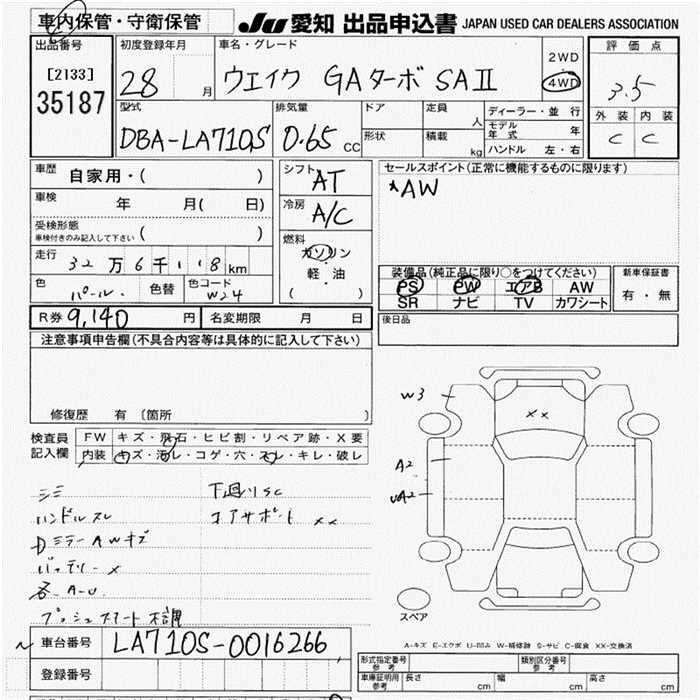 車内保管・守衛保管
JU愛知 出品申込書 JAPAN USED CAR DEALERS ASSOCIATION
出品番号
[2133]
35187
初度登録年月
28 月
車名・グレード
ウエイク GAターボ SAⅡ
2WD
4WD
評価点
3.5
外装 内装
C C
型式
DBA-LA710S
排気量
0.65 CC
ドア
形状
定員
人
積載
kg
ディーラー・並行
モデル年式 年
ハンドル 左・右
車歴
自家用・( )
車検
年 月( 日)
受検形態
車検付きのみ記入して下さい ( )
走行
32万6千 118km
色
パール.
色替
色コード
W24
シフト
AT
冷房
A/C
燃料
ガソリン
軽・油
( )
セールスポイント(正常に機能するものに限ります)
*AW
装備品(純正品に限り○をつけてください)
PS PW エアB AW
SR ナビ TV カワシート
新車保証書
有・無
R券 9,140 円
名変期限 月 日
後日品
注意事項申告欄(不具合内容等は具体的に記入して下さい)
修復歴 有 (箇所 )
検査員記入欄
FW キズ・飛石・ヒビ割・リペア跡・X要
内装 キズ・汚レ・コゲ・穴・スレ・キレ・破レ
シミ
ハンドルスレ
DミラーAWキズ
バッテリーx
各A-U
プッシュスタート不調
下廻りSC
コアサポート xx
W3
xx
A2
UA2
スペア
A-キズ E-エクボ U-凹み W-補修跡 S-サビ C-腐食 XX-交換済
車台番号
LA710S-0016266
登録番号
形式指定番号
参考
類別区分番号
参考
車庫証明用
参考
長さ cm
幅 cm
高さ cm